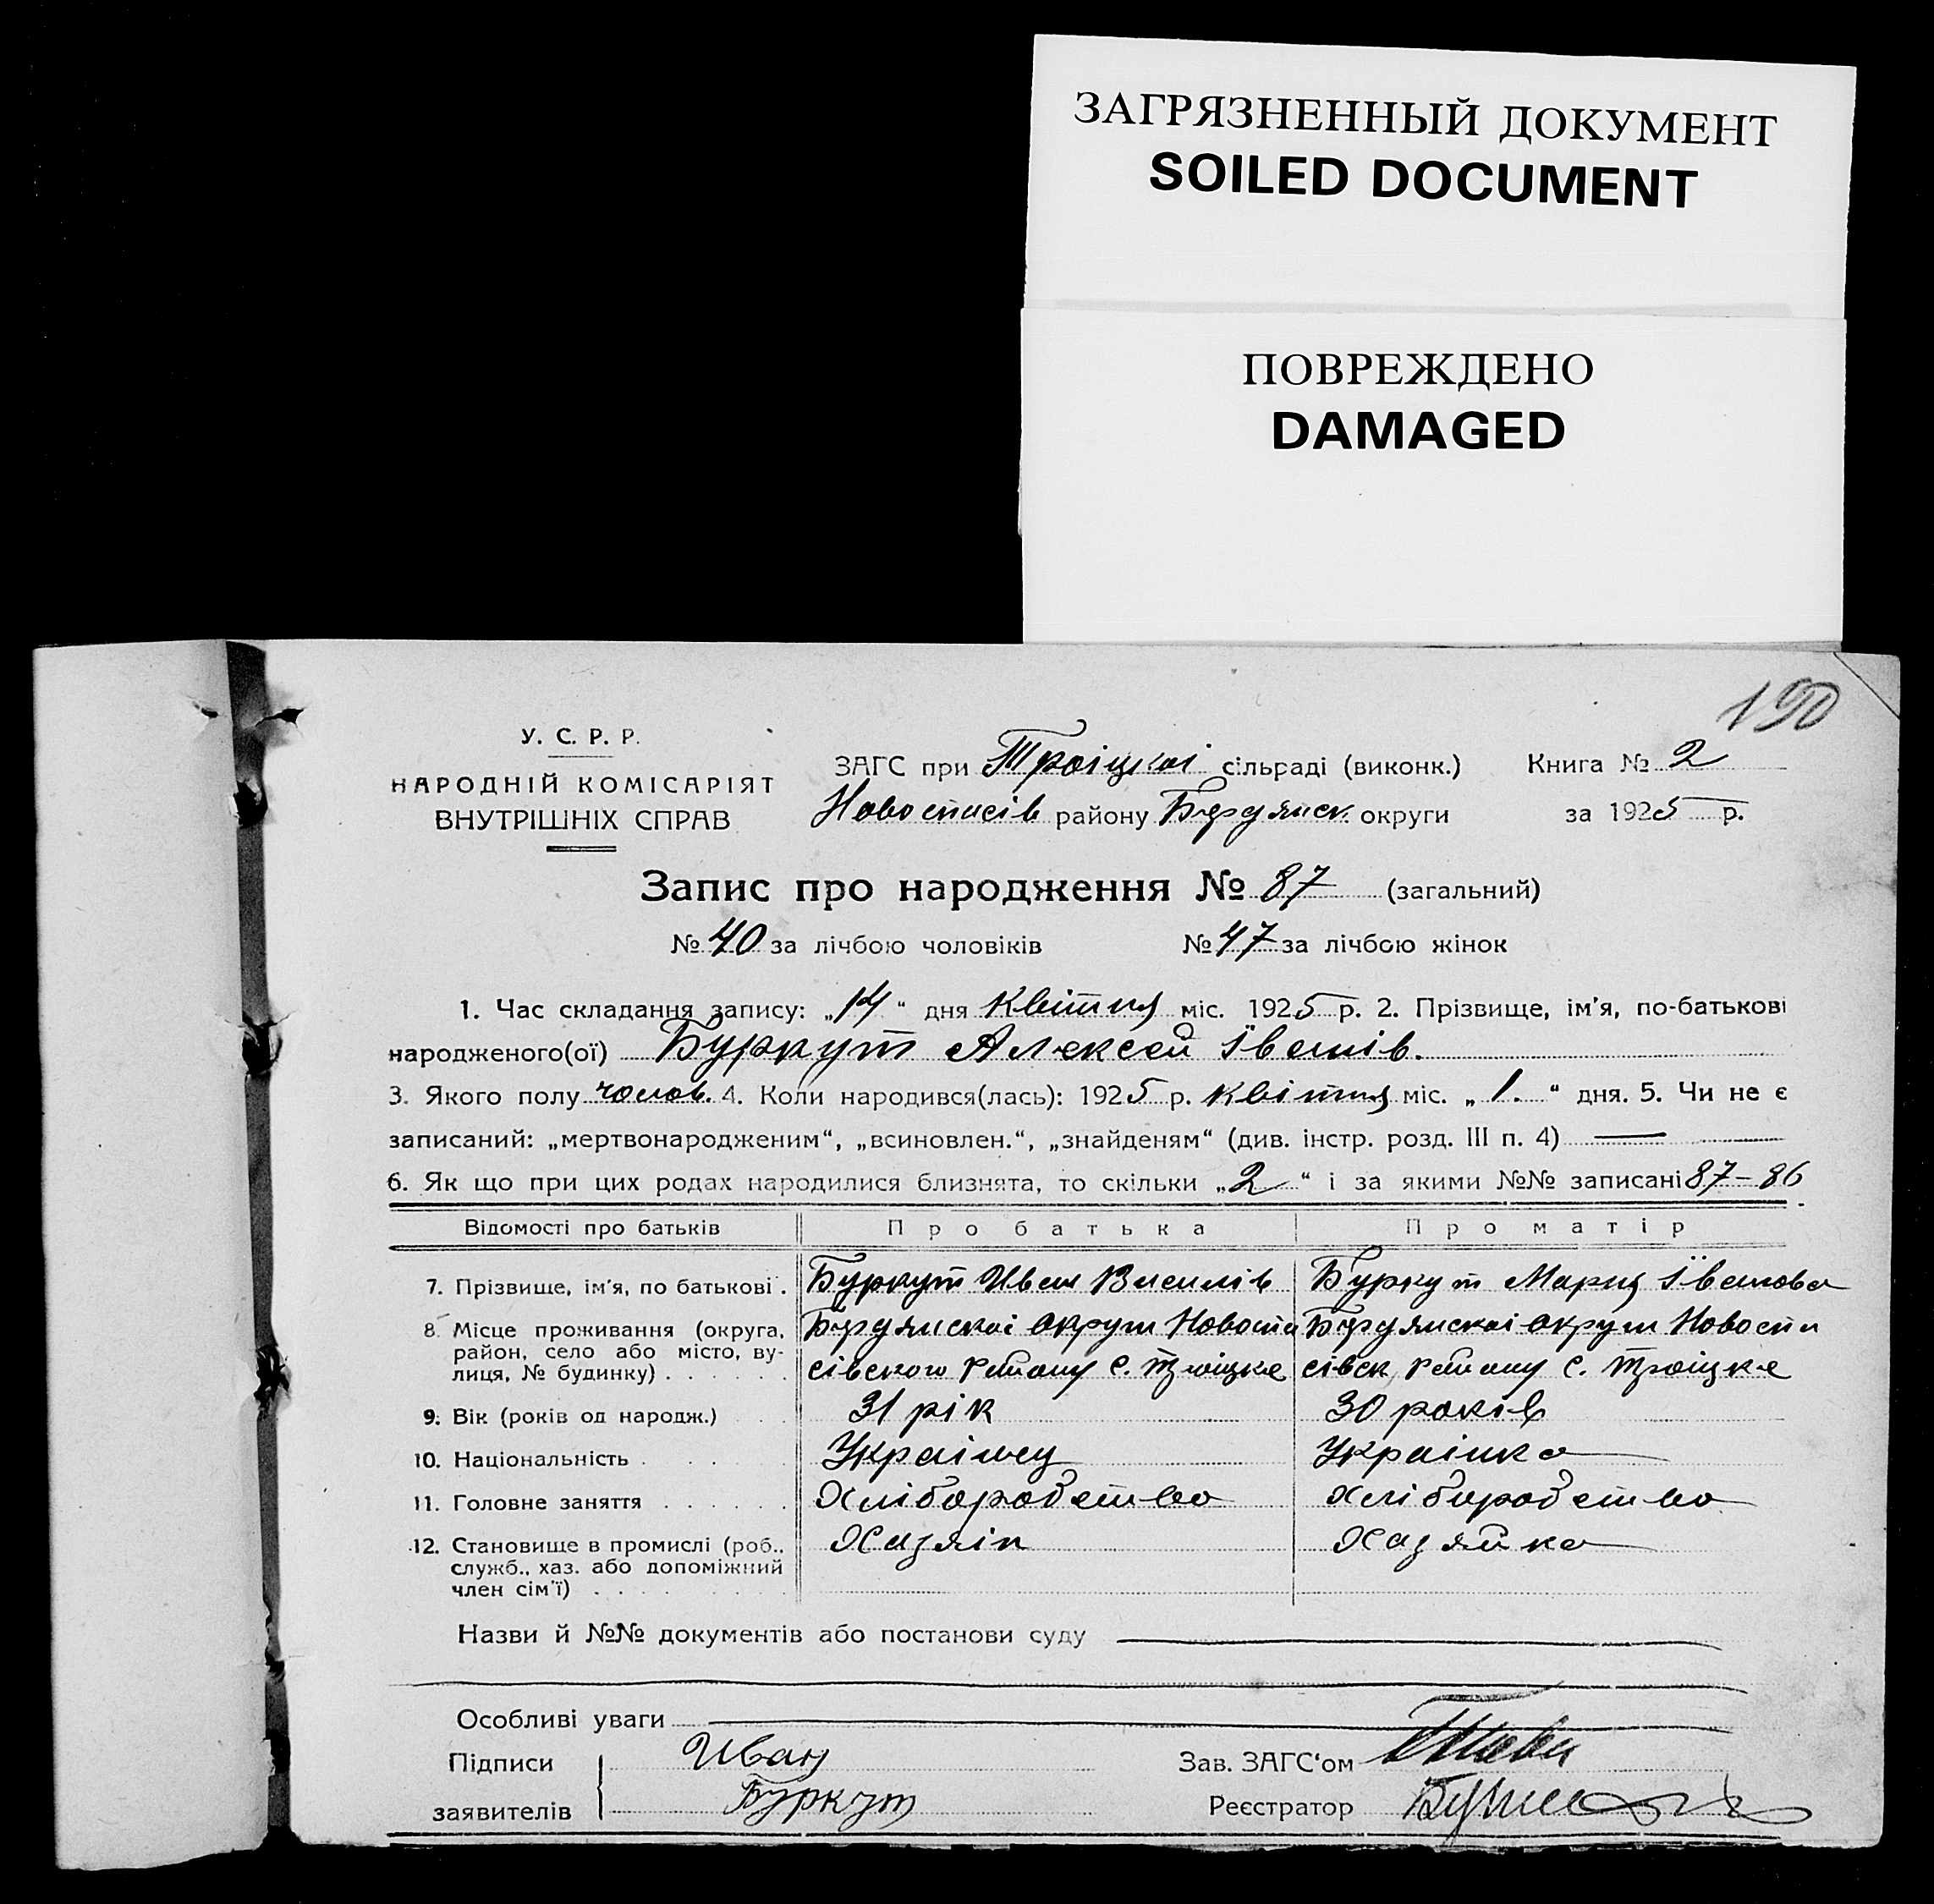 ЗАГРЯЗНЕННЫЙ ДОКУМЕНТ
SOILED DOCUMENT
ПОВРЕЖДЕНО
DAMAGED
190
У. С. Р. Р.
НАРОДНІЙ КОМІСАРІЯТ
ВНУТРІШНІХ СПРАВ
ЗАГС при Троіцкоі сільраді (виконк.) Книга № 2
Новоспасів району Бердянск. округи за 1925 р.
Запис про народження № 87 (загальний)
№ 40 за лічбою чоловіків № 47 за лічбою жінок
1. Час складання запису: „14“ дня Квітня міс. 1925 р. 2. Прізвище, ім'я, по-батькові
народженого(ої) Буркут Алексей Іванів.
3. Якого полу чолов. 4. Коли народився(лась): 1925 р. Квітня міс. „1.“ дня. 5. Чи не є
записаний: „мертвонародженим“, „всиновлен.“, „знайденям“ (див. інстр. розд. III п. 4) —
6. Як що при цих родах народилися близнята, то скільки „2“ і за якими №№ записані 87–86
Відомості про батьків Про батька Про матір
7. Прізвище, ім'я, по батькові. Буркут Иван Василів Буркут Мария Іванова
8. Місце проживання (округа, район, село або місто, вулиця, № будинку) Бердянскоі округи Новоспасівского району с. Троіцке Бердянскоі округи Новоспасівск. району с. Троіцке
9. Вік (років од народж.) 31 рік 30 років
10. Національність Украінец Украінка
11. Головне заняття Хліборобство Хліборобство
12. Становище в промислі (роб., служб., хаз. або допоміжний член сім'ї) Хазяін Хазяйка
Назви й №№ документів або постанови суду
Особливі уваги
Підписи Иван Зав. ЗАГС'ом
заявителів Буркут Реєстратор